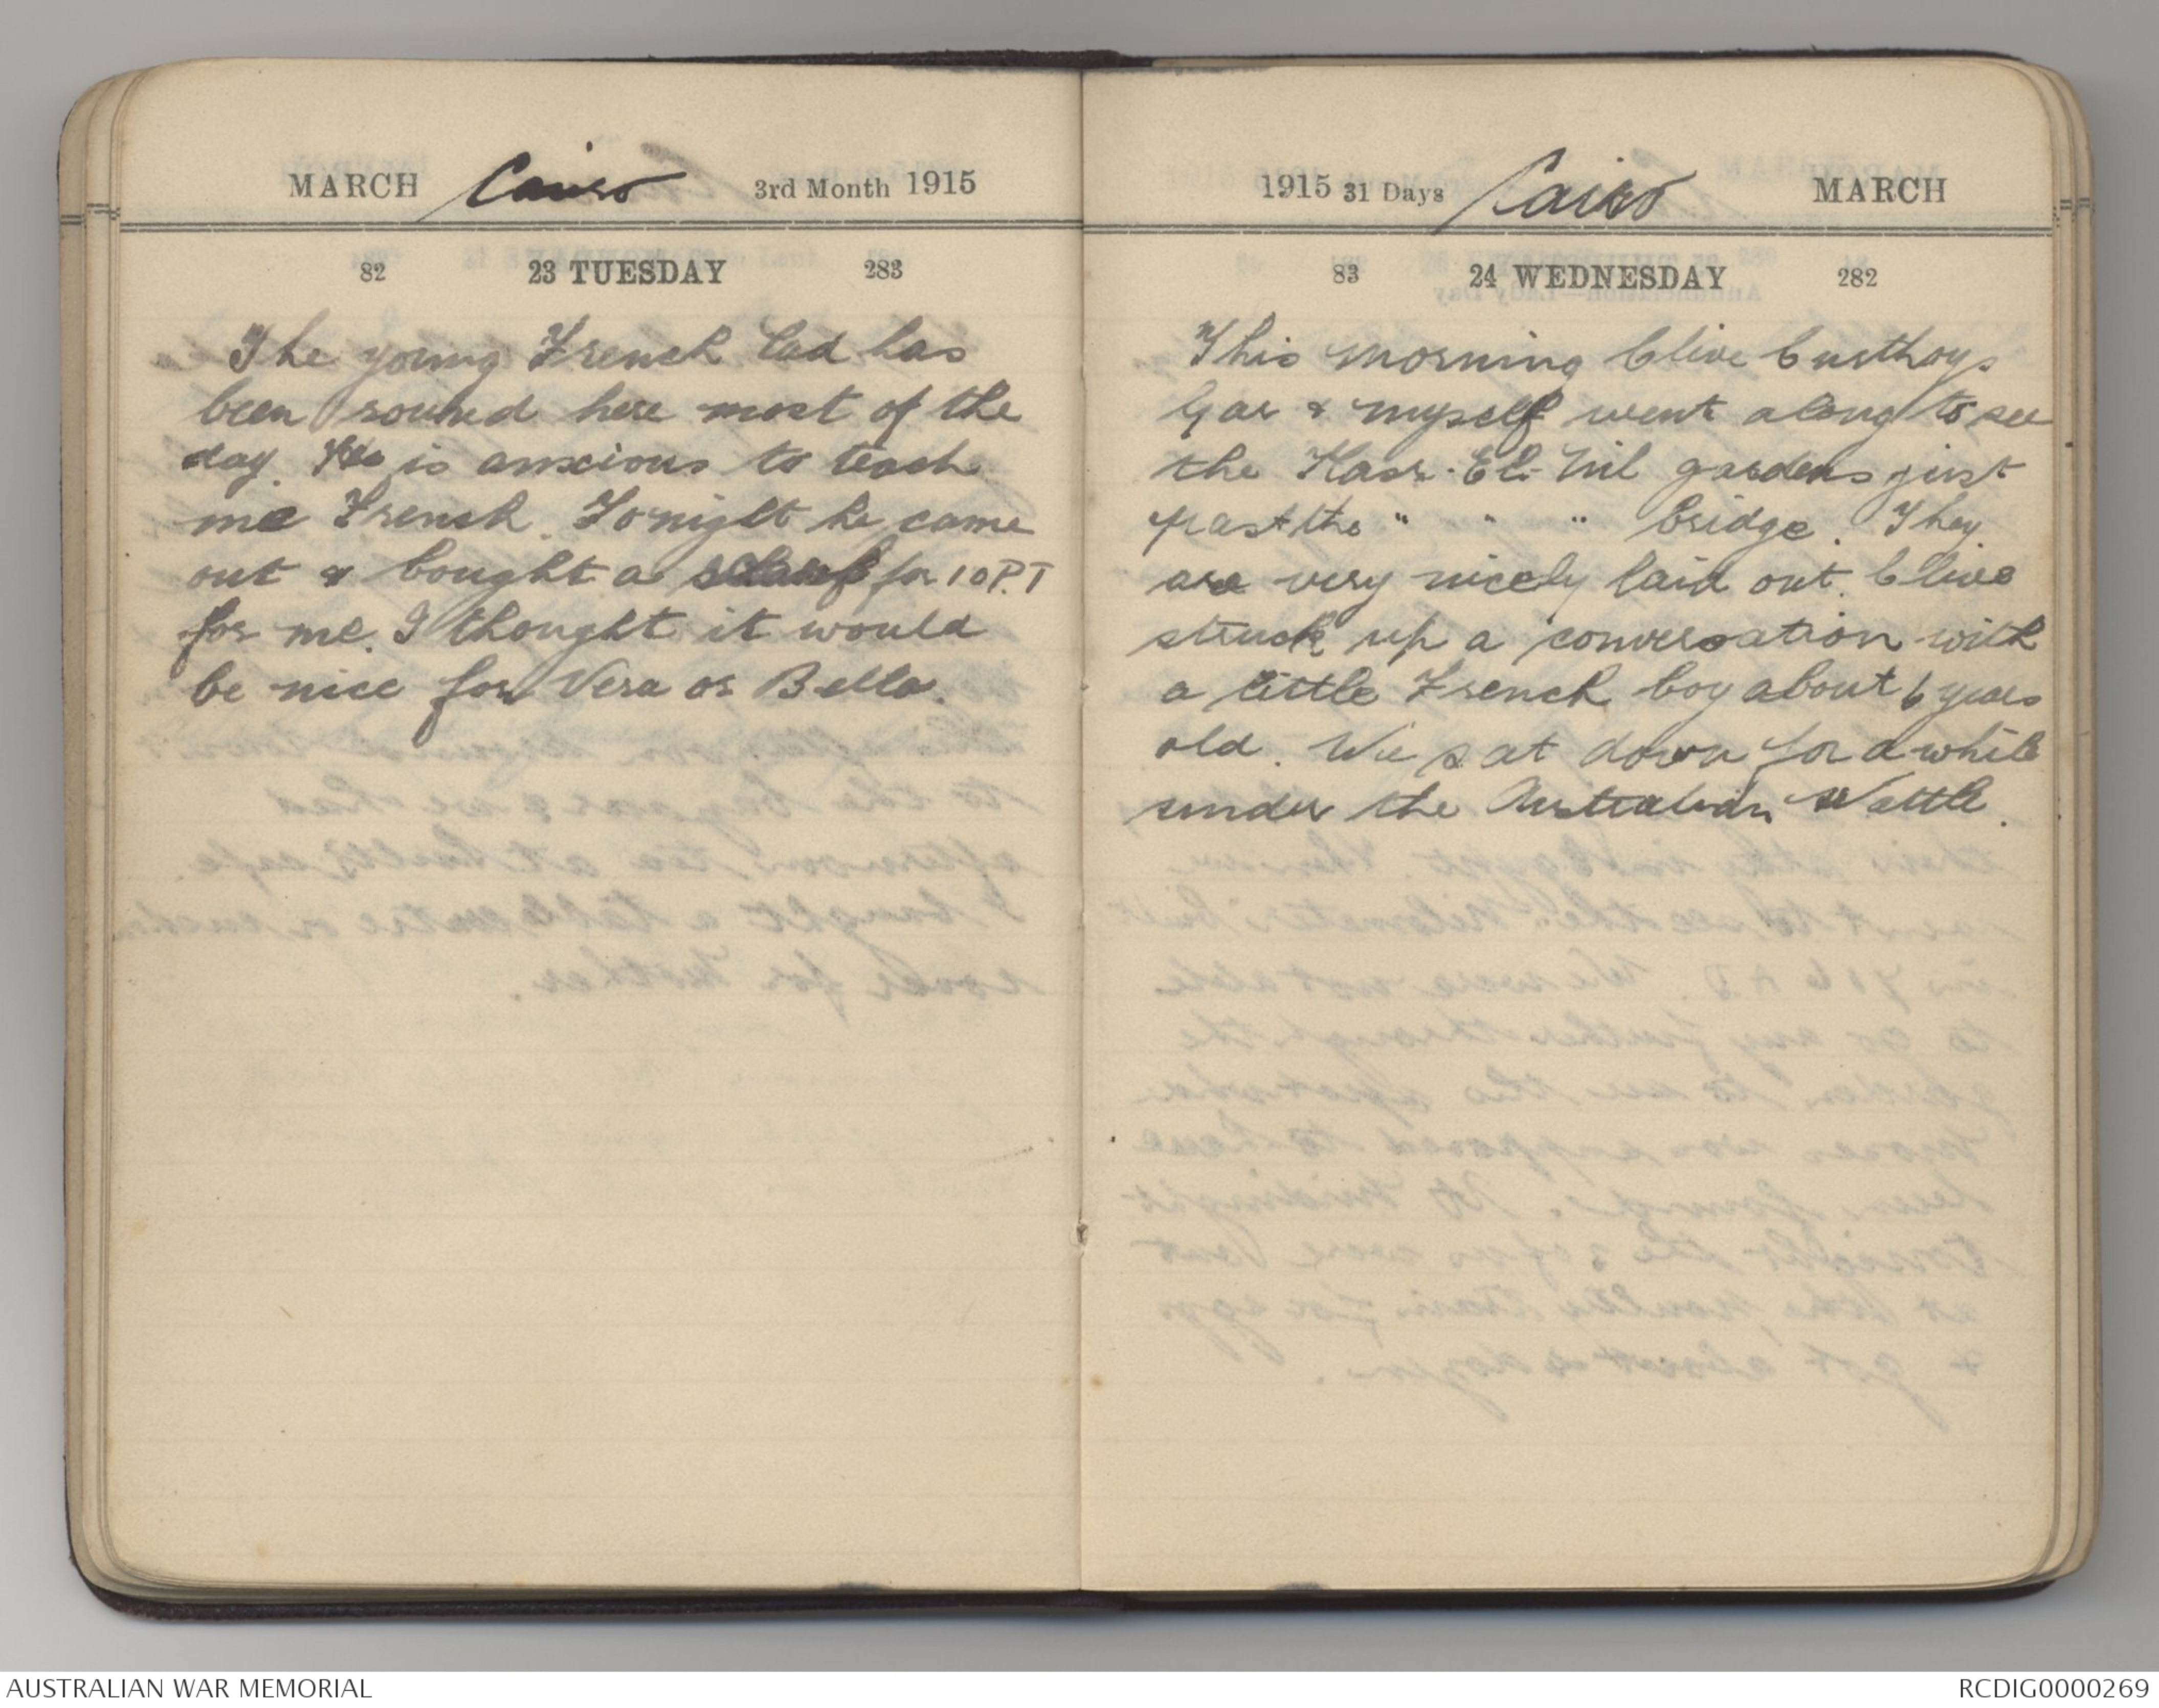 MARCH Cairo 3rd Month 1915
82 23 TUESDAY 283
The young French lad has
been round here most of the
day. He is anxious to teach
me French. Tonight he came
out & bought a scarf for 10 P.T
for me. I thought it would
be nice for Vera or Bella.
1915 31 Days Cairo MARCH
83 24 WEDNESDAY 282
This morning Clive
& myself went along to see
the Kasr-El-Nil gardens just
past the " " " bridge. They
are very nicely laid out. Clive
struck up a conversation with
a little French boy about 6 years
old. We sat down for a while
under the Australian Wattle.
AUSTRALIAN WAR MEMORIAL
RCDIG0000269